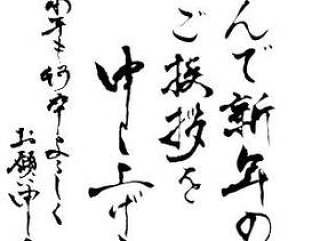 んで新年の
ご挨拶を
申し上げ
本年も何卒よろしく
お願い申し